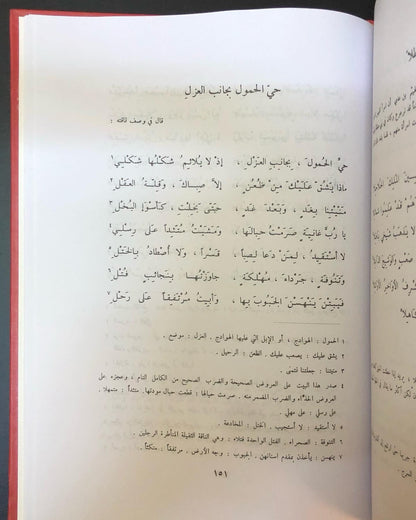 حيّ الحمول بجانب العزلِ
قال في وصف ناقته :
حَيِّ الحُمولَ ، بِجانِبِ العَزْلِ ، إذْ لا يُلائِمُ شَكْلُها شَكْلي ١
ماذا يَشُقّ عَلَيكَ مِنْ ظُعُنٍ ، إلاّ صِباكَ ، وَقِلّةُ العَقْلِ ٢
مَنّيْتِنا بِغَدٍ ، وَبَعْدَ غَدٍ ، حتّى بَخِلْتِ ، كأسْوَإِ البُخْلِ ٣
يا رُبّ غانِيَةٍ صَرَمْتُ حِبالَها ، وَمَشَيْتُ مُتّئِداً عَلى رِسْلي ٤
لا أسْتَقيدُ ، لمَنْ دَعا لِصِباً ، قَسْراً ، وَلا أُصْطادُ بِالخَتْلِ ٥
وَتَنُوفَةٍ ، جَرْداءَ ، مَهْلَكَةٍ ، جاوَزْتُها بِنَجائِبٍ ، فُتْلِ ٦
فَيَبِتْنَ يَنْهَسْنَ الجَبُوبَ بِها ، وَأبِيتُ مُرْتَفِقاً عَلى رَحْلِ ٧
١ الحمول : الهوادج ، أو الإبل التي عليها الهوادج . العزل : موضع .
٢ يشق عليك : يصعب عليك . الظعن : الرحيل .
٣ منيتنا : جعلتنا نتمنى .
٤ صدر هذا البيت على العروض الصحيحة والضرب الصحيح من الكامل التام ، وعجزه على
العروض الحذّاء والضرب المضمر منه . صرمت حبالها : قطعت حبال مودتها . متئداً : متمهلا .
على رسلي : على مهلي
٥ لا أستقيد : لا أستجيب . الختل : المخادعة .
٦ التنوفة : الصحراء . الفتل الواحدة فتلاء : وهي الناقة الثقيلة المتأطرة الرجلين .
٧ ينهسن : يأخذن بمقدم أسنانهن . الجبوب : وجه الأرض . مرتفقاً : متكئاً .
١٥١